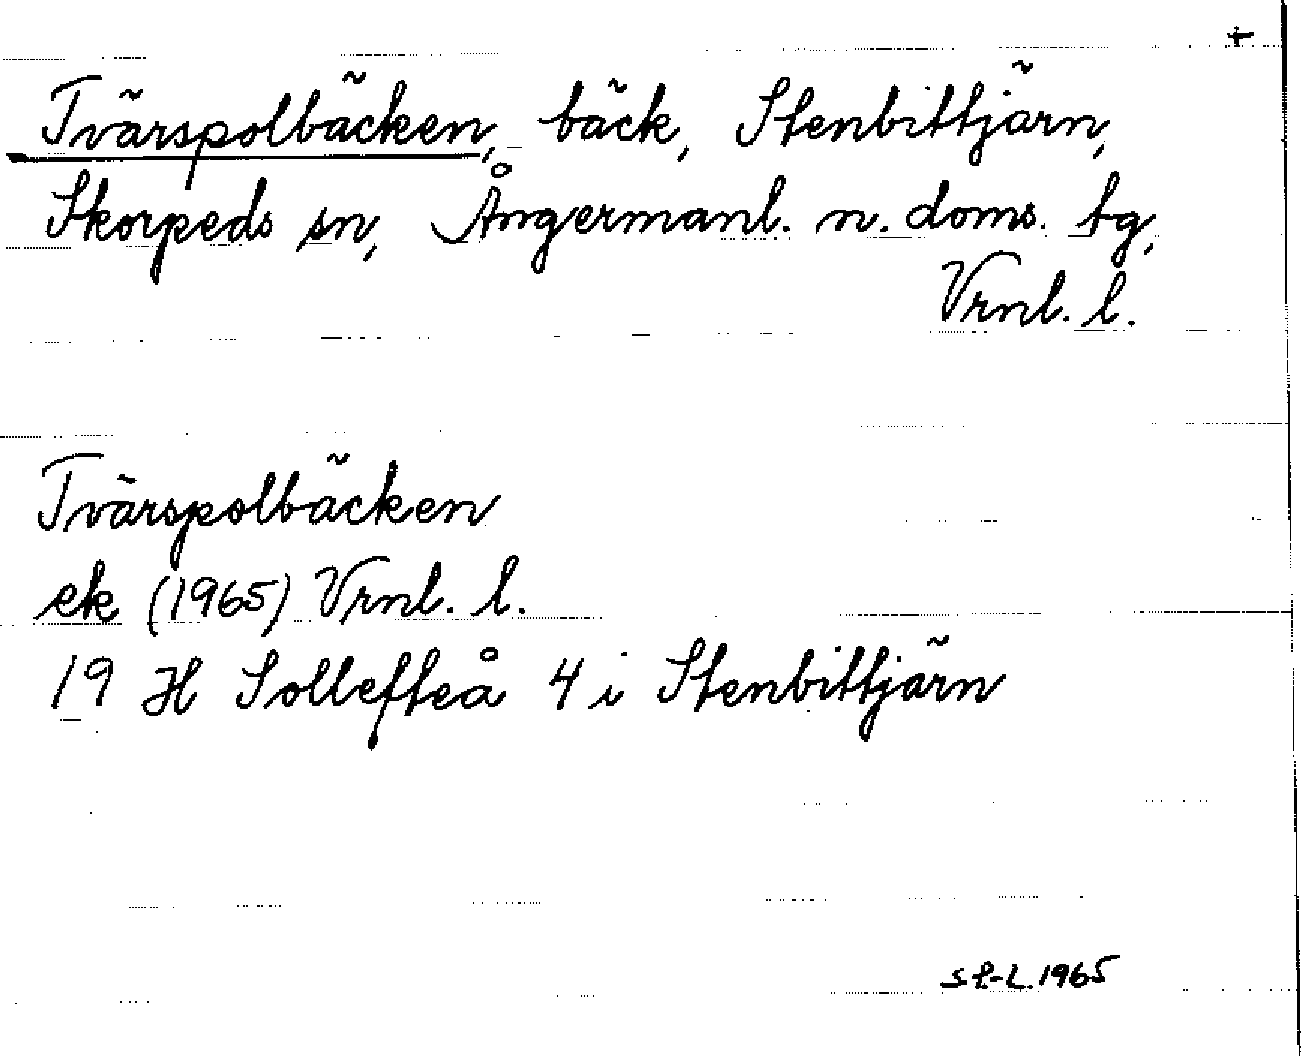 +
Tvärspolbäcken, bäck, Stenbittjärn,
Skorpeds sn, Ångermanl. n. doms. tg,
Vrnl. l.
Tvärspolbäcken
ek (1965) Vrnl. l.
19 H Sollefteå 4 i Stenbittjärn
St-L. 1965